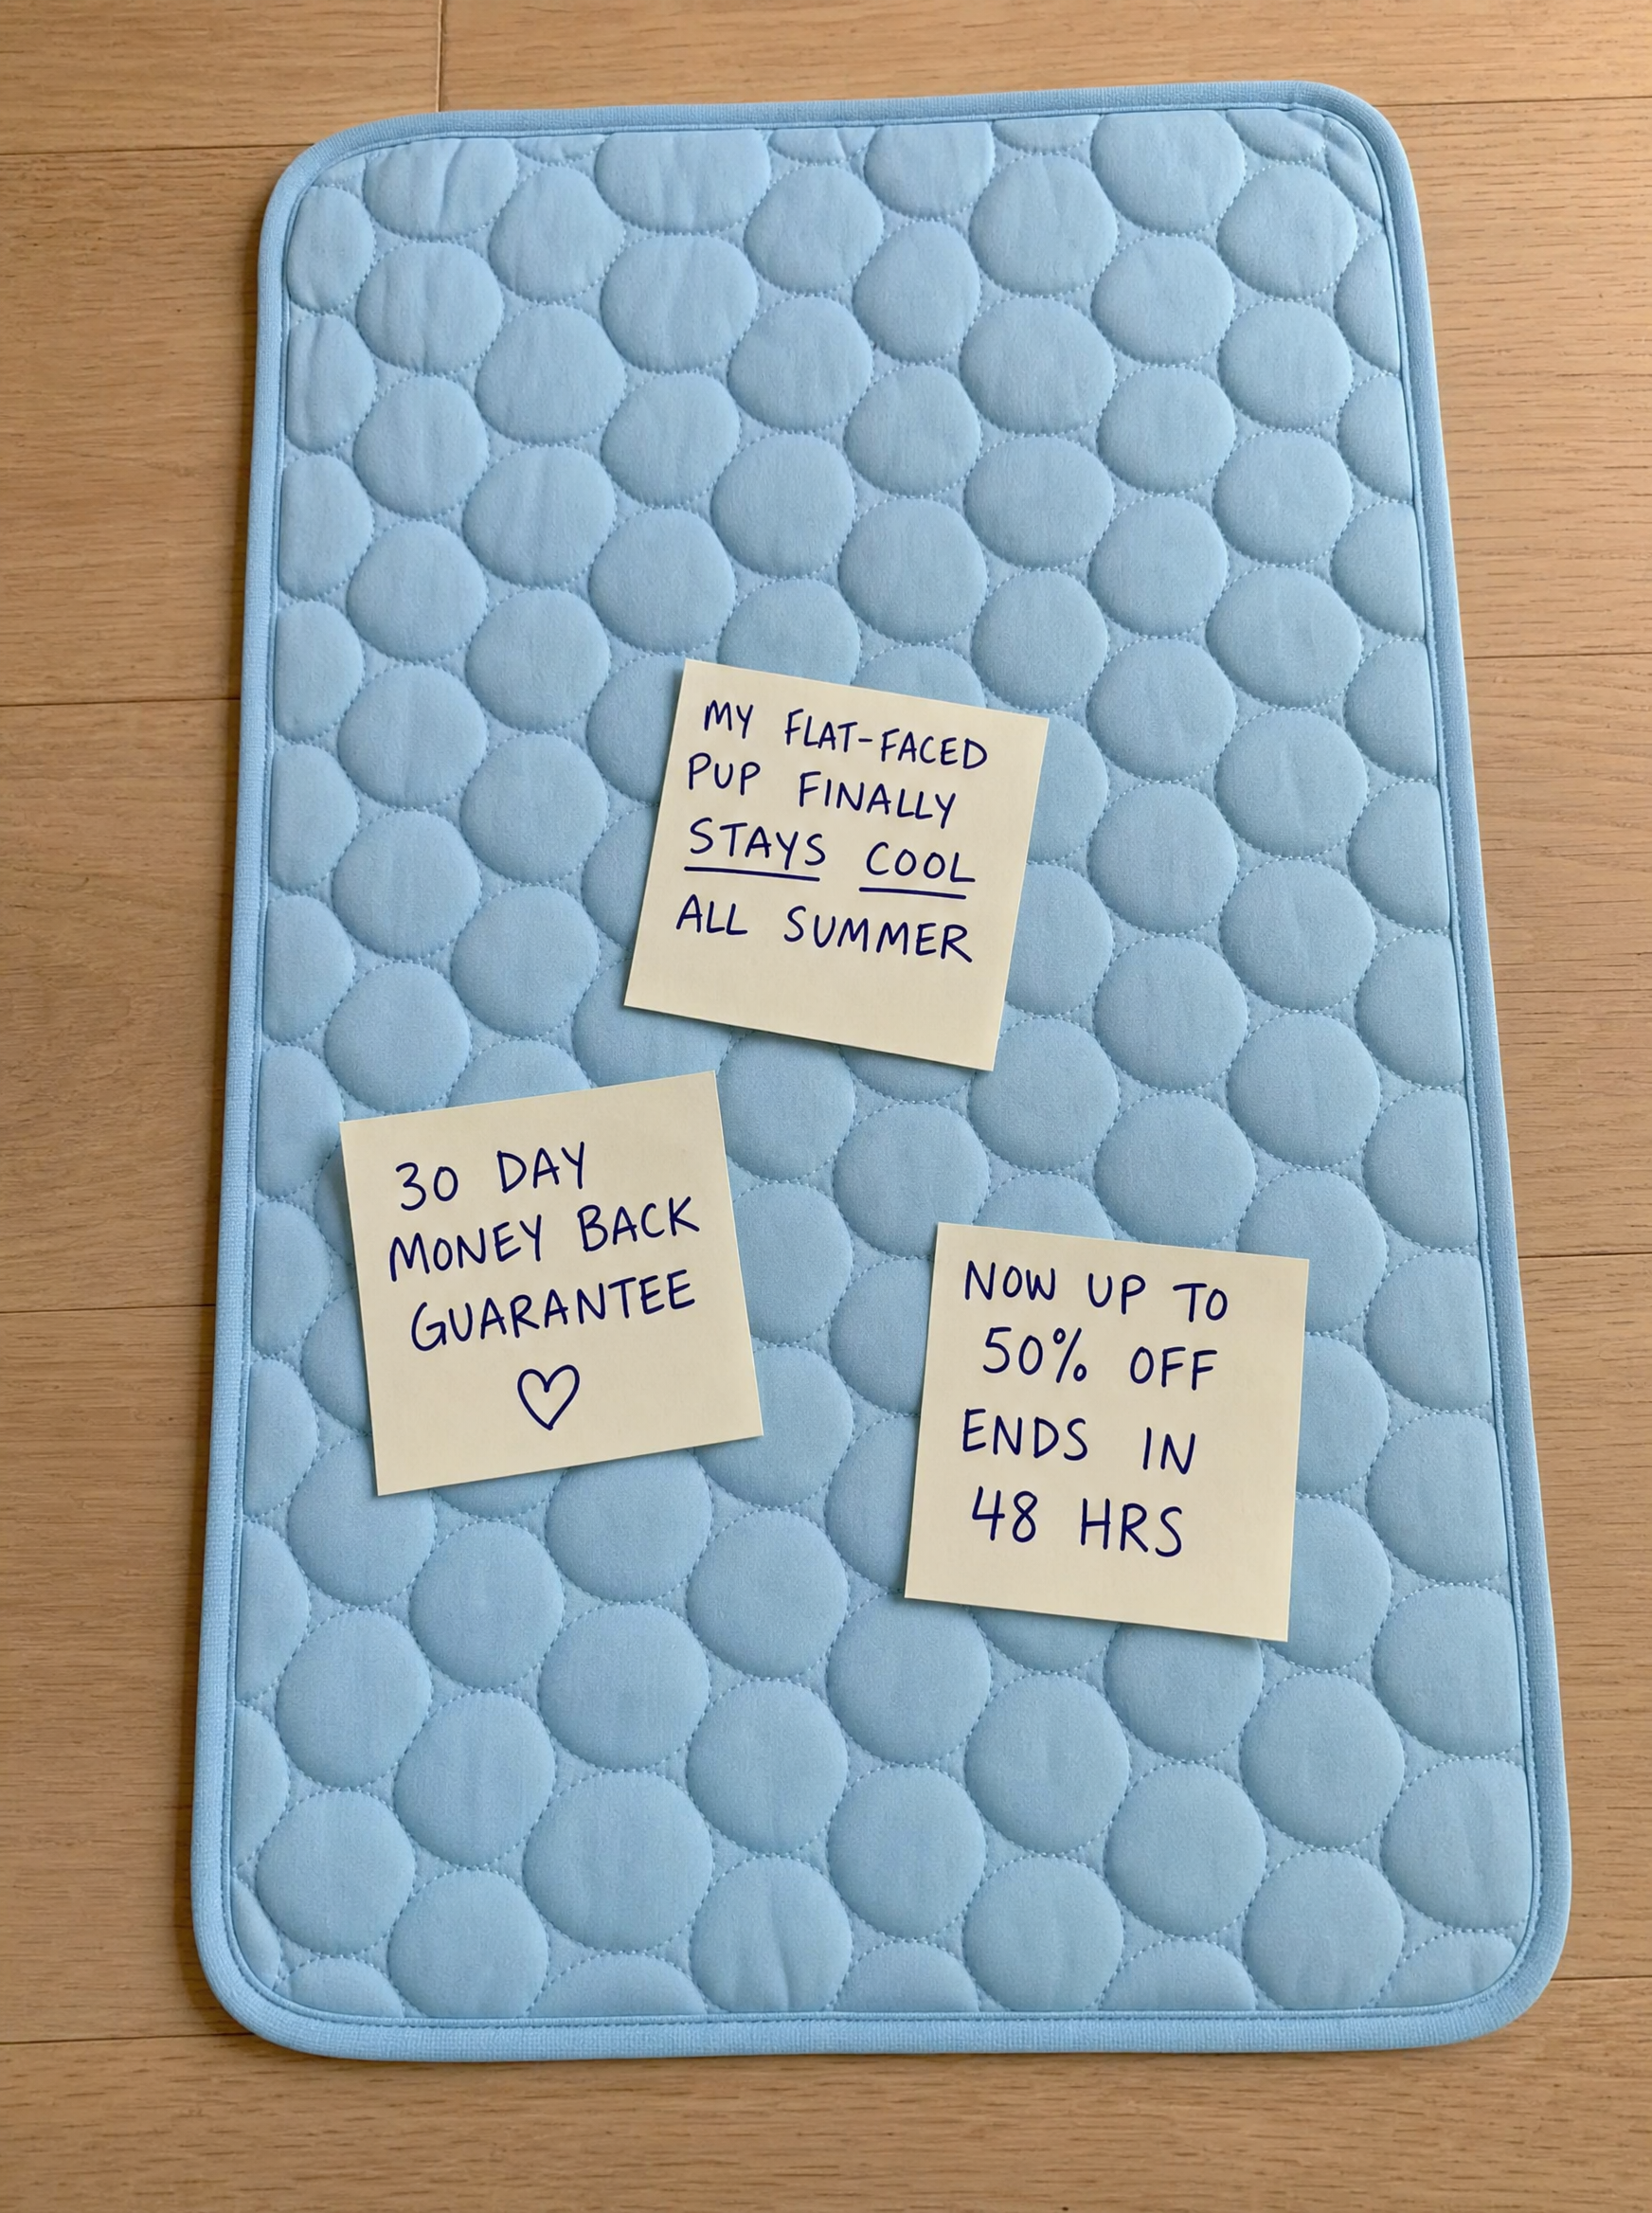 MY FLAT-FACED
PUP FINALLY
STAYS COOL
ALL SUMMER
30 DAY
MONEY BACK
GUARANTEE
NOW UP TO
50% OFF
ENDS IN
48 HRS